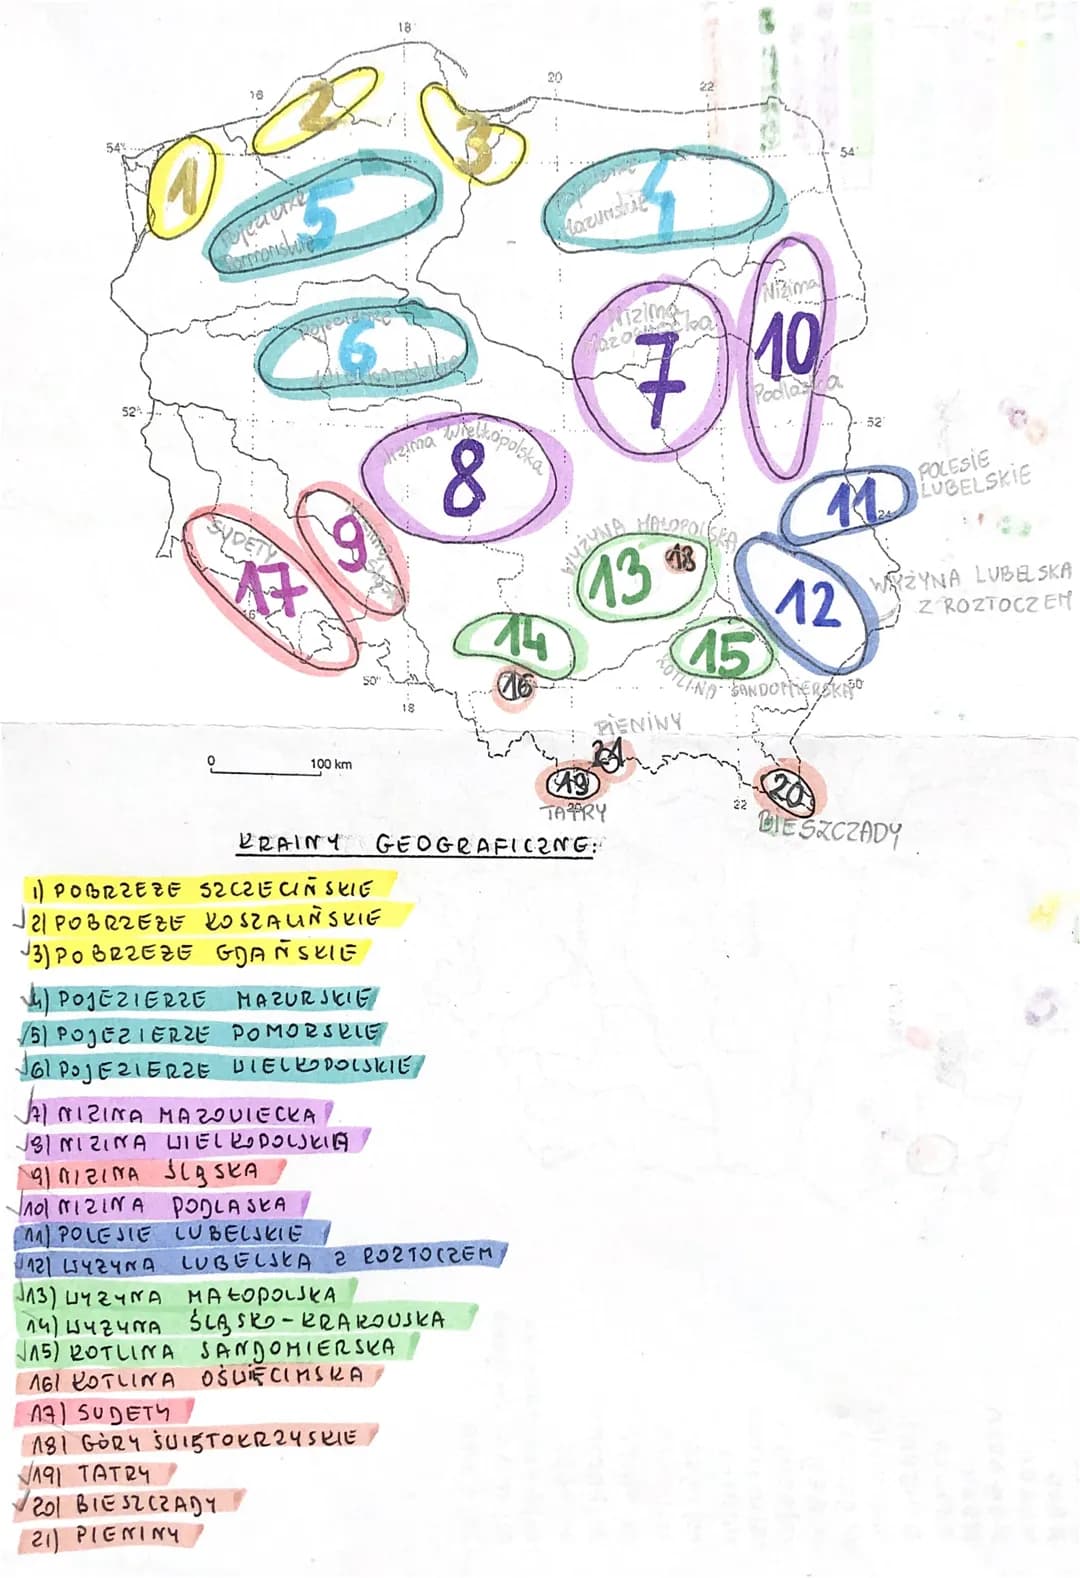 18
16
20
22
54°
54
1
2
3
Pojezierze
Pomorskie
5
Pojezierze
Mazurskie
4
Pojezierze
6
Wielkopolskie
Nizina
Mazowiecka
7
Nizina
10
Podlaska
52°
52
Nizina Wielkopolska
8
POLESIE
LUBELSKIE
11
24
SUDETY
17
Nizina
Śląska
9
16
WYŻYNA MAŁOPOLSKA
13
18
12
WYŻYNA LUBELSKA
Z ROZTOCZEM
14
15
KOTLINA SANDOMIERSKA
50°
50
16
18
PIENINY
21
0 100 km
19
20
TATRY
22
20
BIESZCZADY
KRAINY GEOGRAFICZNE:
1) POBRZEŻE SZCZECIŃSKIE
2) POBRZEŻE KOSZALIŃSKIE
3) POBRZEŻE GDAŃSKIE
4) POJEZIERZE MAZURSKIE
5) POJEZIERZE POMORSKIE
6) POJEZIERZE WIELKOPOLSKIE
7) NIZINA MAZOWIECKA
8) NIZINA WIELKOPOLSKA
9) NIZINA ŚLĄSKA
10) NIZINA PODLASKA
11) POLESIE LUBELSKIE
12) WYŻYNA LUBELSKA Z ROZTOCZEM
13) WYŻYNA MAŁOPOLSKA
14) WYŻYNA ŚLĄSKO-KRAKOWSKA
15) KOTLINA SANDOMIERSKA
16) KOTLINA OŚWIĘCIMSKA
17) SUDETY
18) GÓRY ŚWIĘTOKRZYSKIE
19) TATRY
20) BIESZCZADY
21) PIENINY